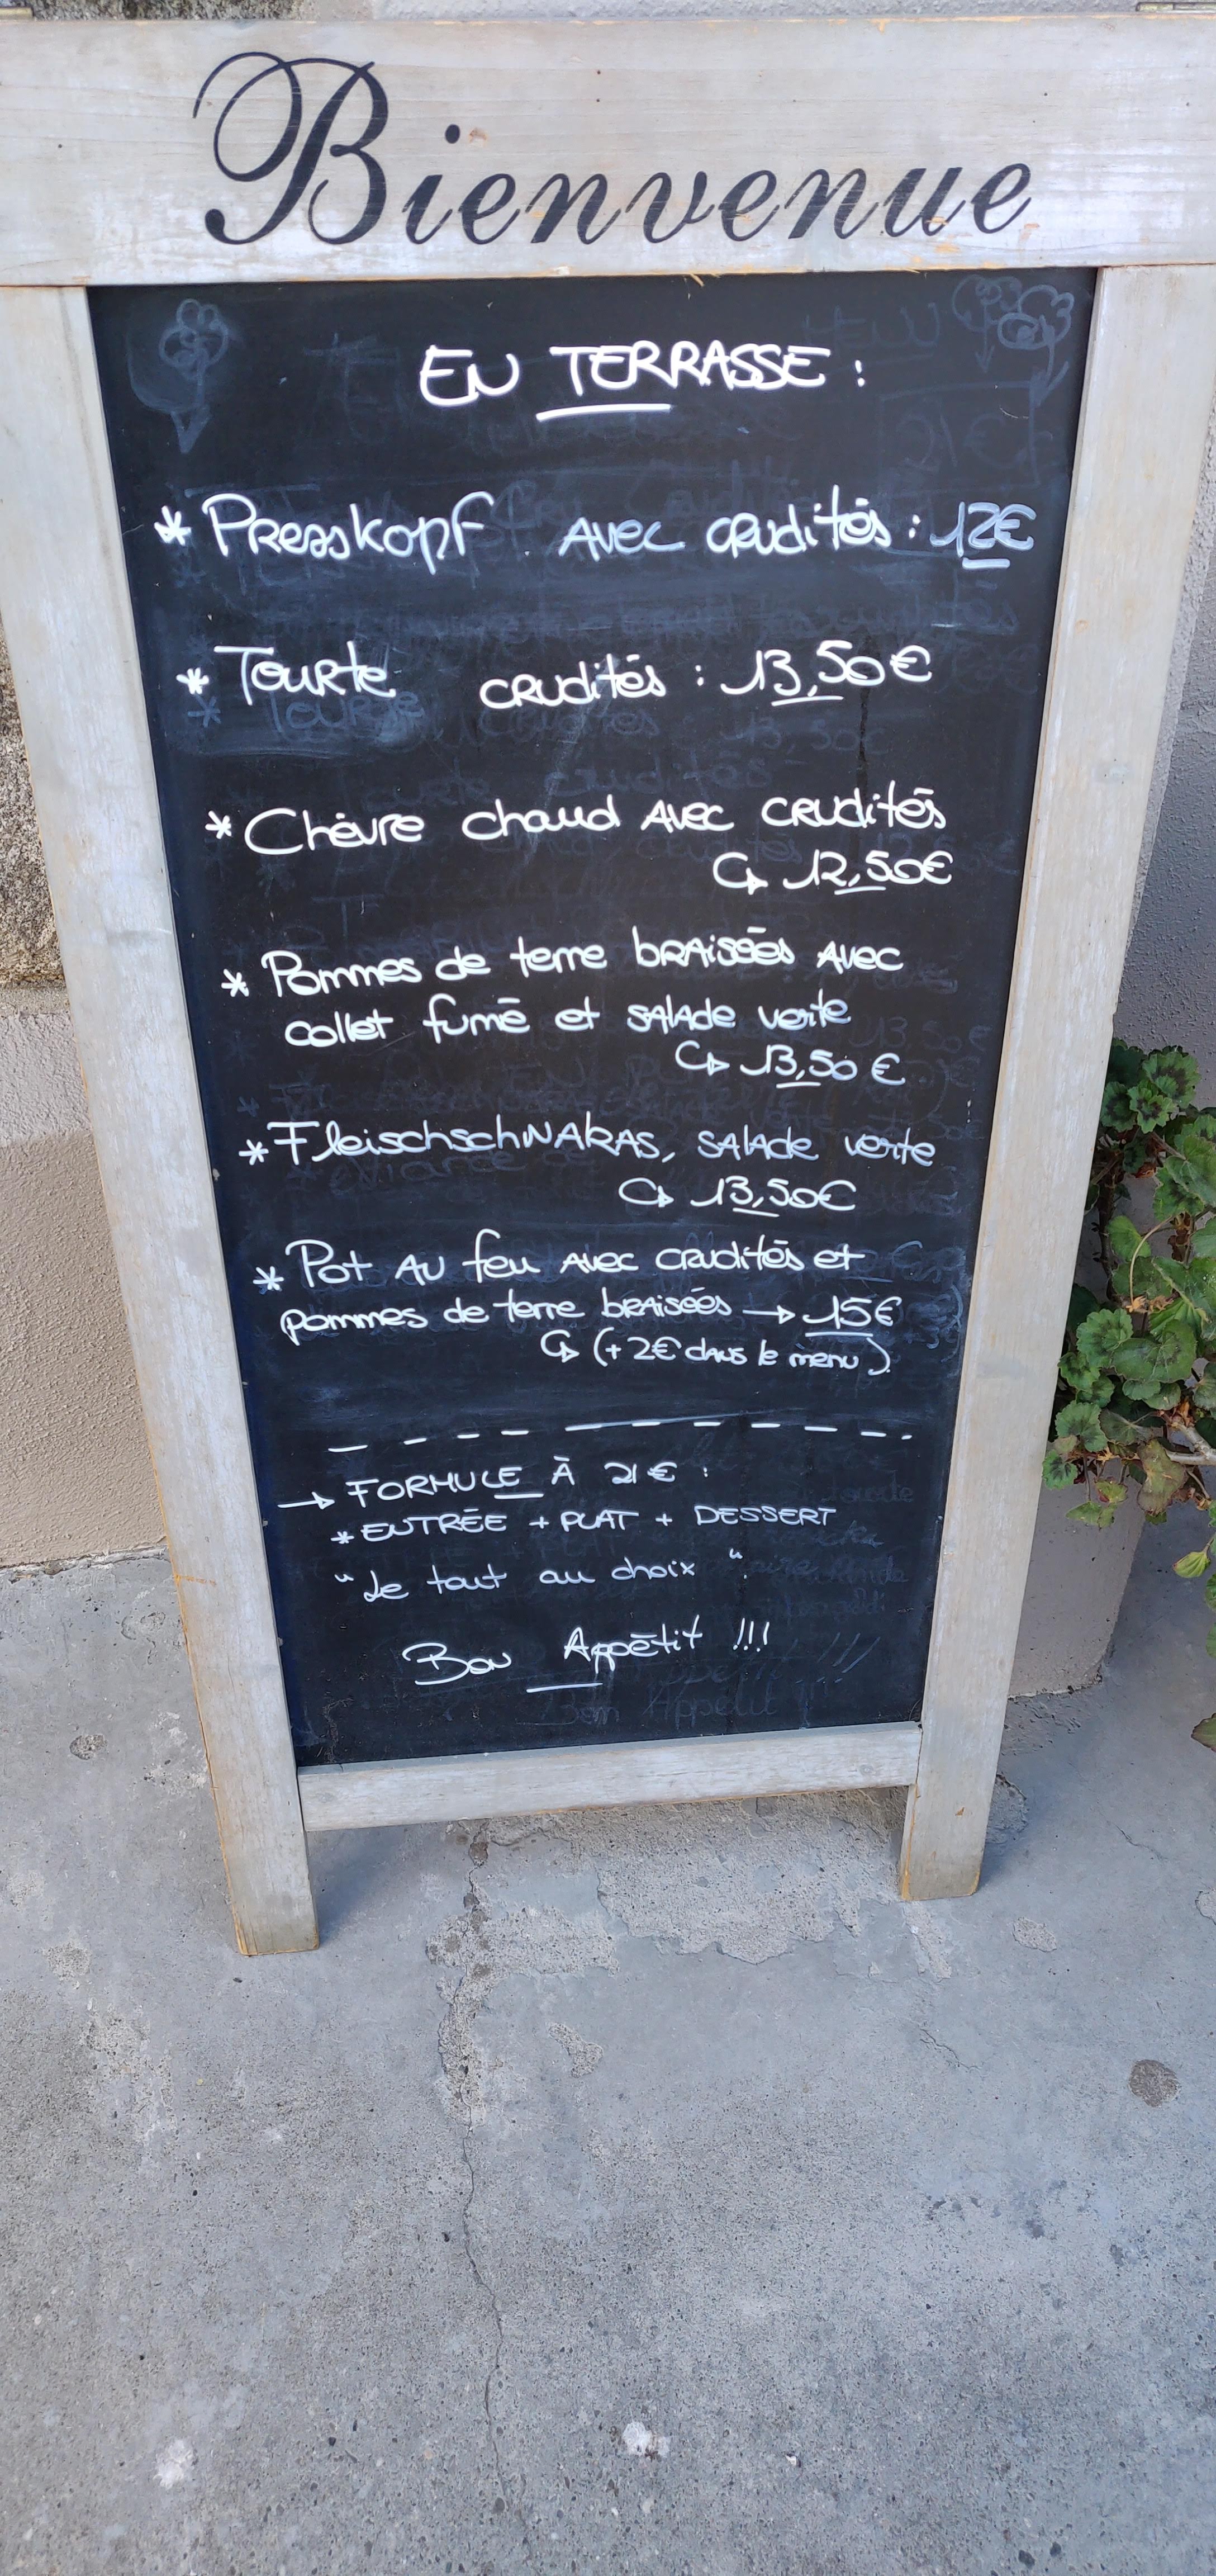 Bienvenue
EN TERRASSE :
* Presskopf avec crudités : 12€
* Tourte crudités : 13,50€
* Chèvre chaud avec crudités
↳ 12,50€
* Pommes de terre braisées avec
collet fumé et salade verte
↳ 13,50 €
* Fleischschnakas, salade verte
↳ 13,50€
* Pot au feu avec crudités et
pommes de terre braisées → 15€
↳ (+2€ dans le menu)
→ FORMULE À 21€ :
* ENTRÉE + PLAT + DESSERT
"Le tout au choix".
Bon Appétit !!!